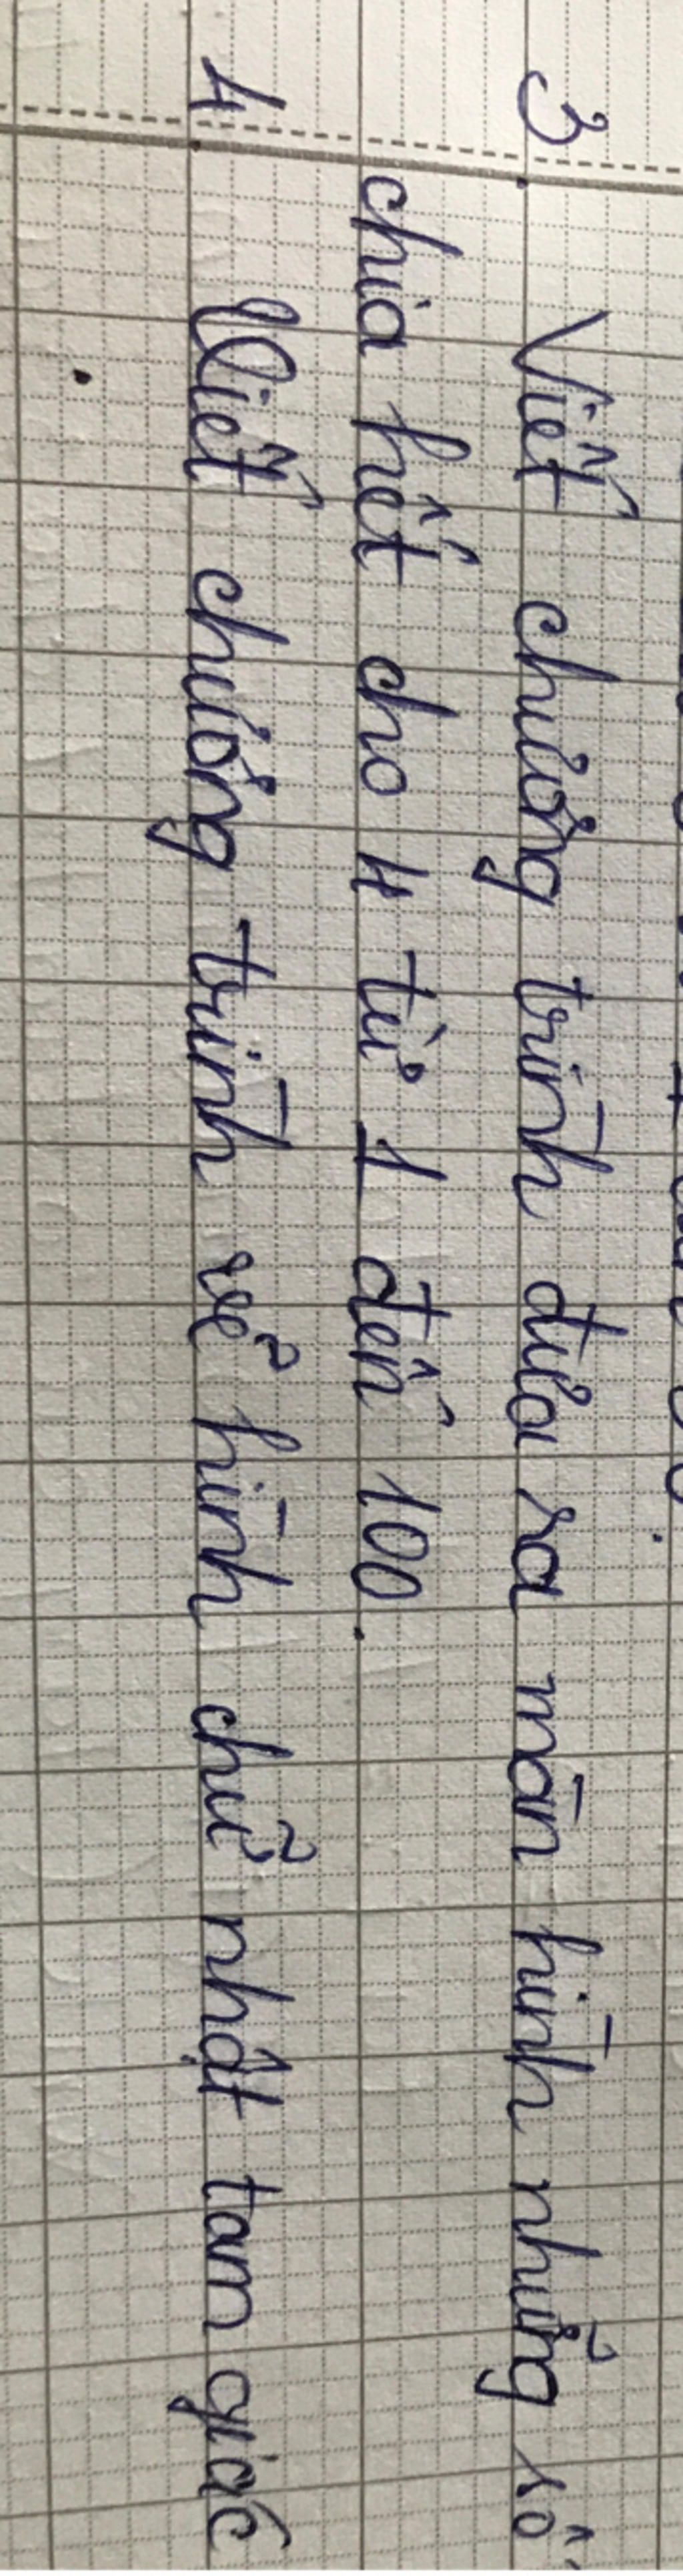 3 Viết chương trình đưa ra màn hình những số
chia hết cho 4 từ 1 đến 100.
4 Viết chương trình vẽ hình chữ nhật tam giác